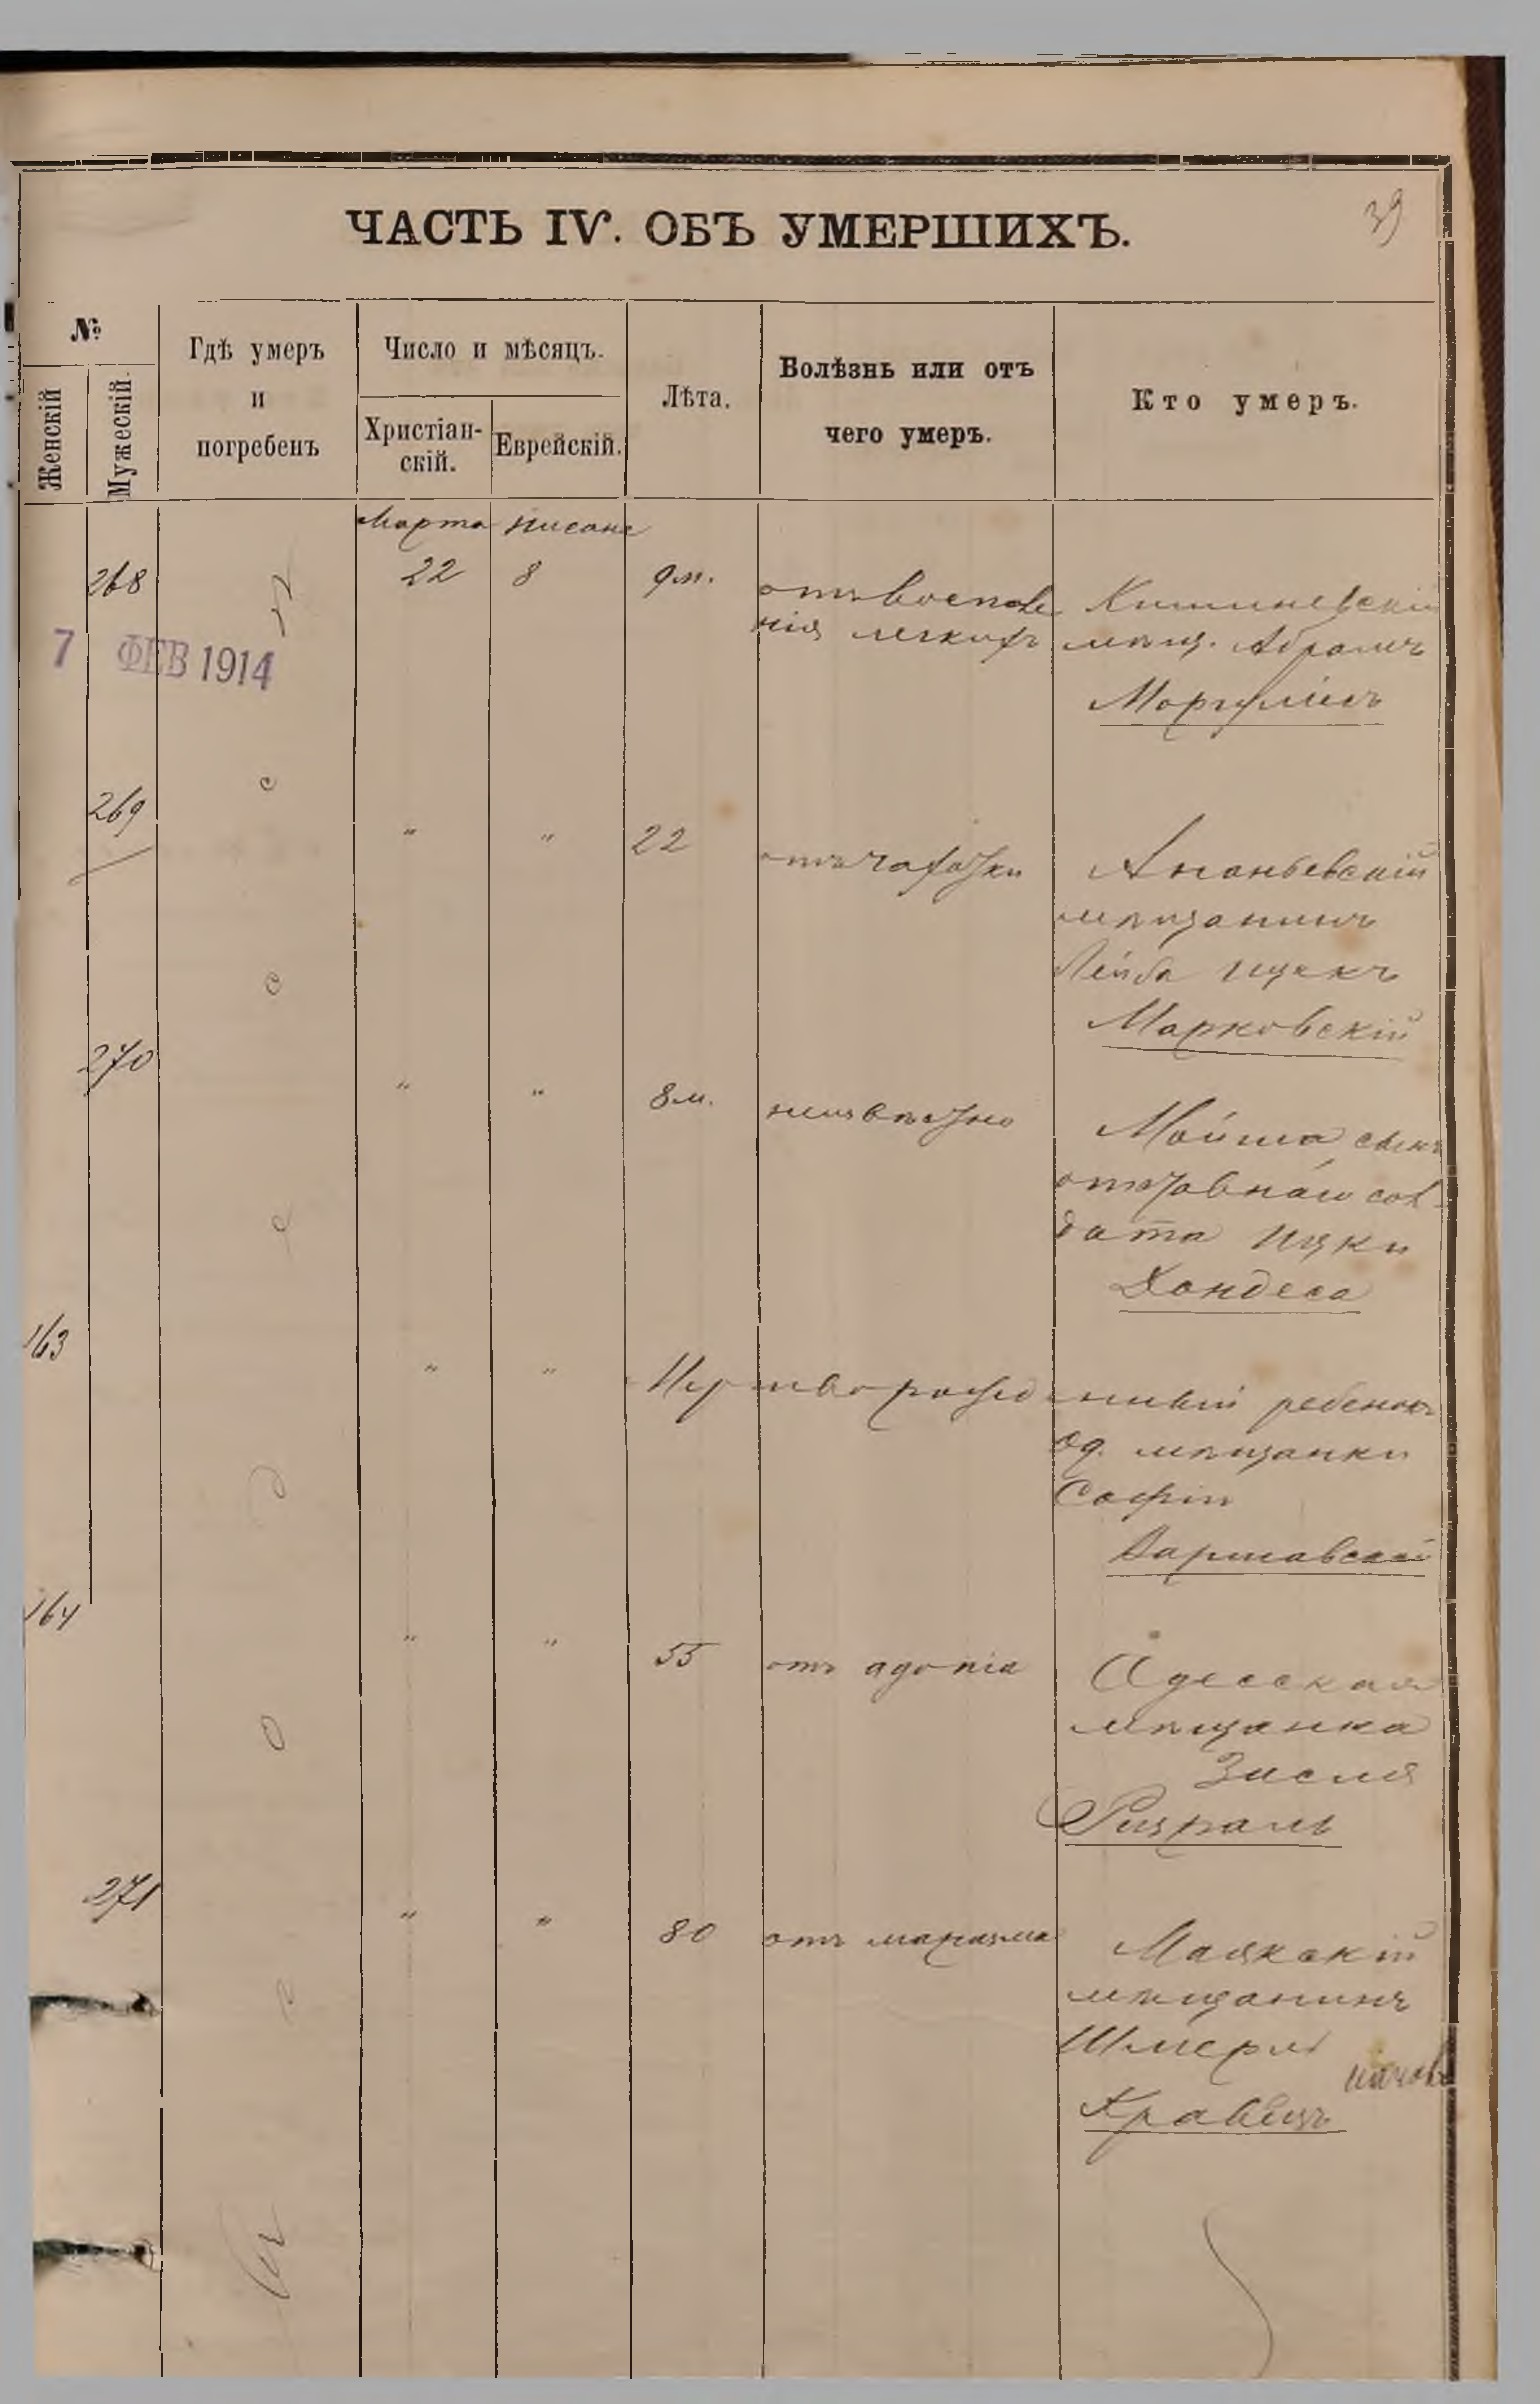 39
ЧАСТЬ IV. ОБЪ УМЕРШИХЪ.
№
Женскій
Мужескій.
Гдѣ умеръ
и
погребенъ
Число и мѣсяцъ.
Христіан-
скій.
Еврейскій.
Лѣта.
Болѣзнь или отъ
чего умеръ.
Кто умеръ.
Марта
нисана
268
22
8
9 м.
отъ воспале
нія легкихъ
Кишиневскій
мѣщ. Абрамъ
Моргулисъ
7 ФЕВ 1914
269
"
"
22
отъ чахотки
Ананьевскій
мѣщанинъ
Лейба Ицекъ
Марковскій
270
"
"
8 м.
Мойша сынъ
отставнаго сол
дата Ицки
163
"
"
Мертворожд
енный ребенокъ
Од. мѣщанки
Софіи
Варшавской
164
"
"
55
отъ agonia
Одесская
мѣщанка
Зисля
271
"
"
80
отъ маразма
Маякскій
мѣщанинъ
Шмерль
Кравецъ
въ Одессѣ